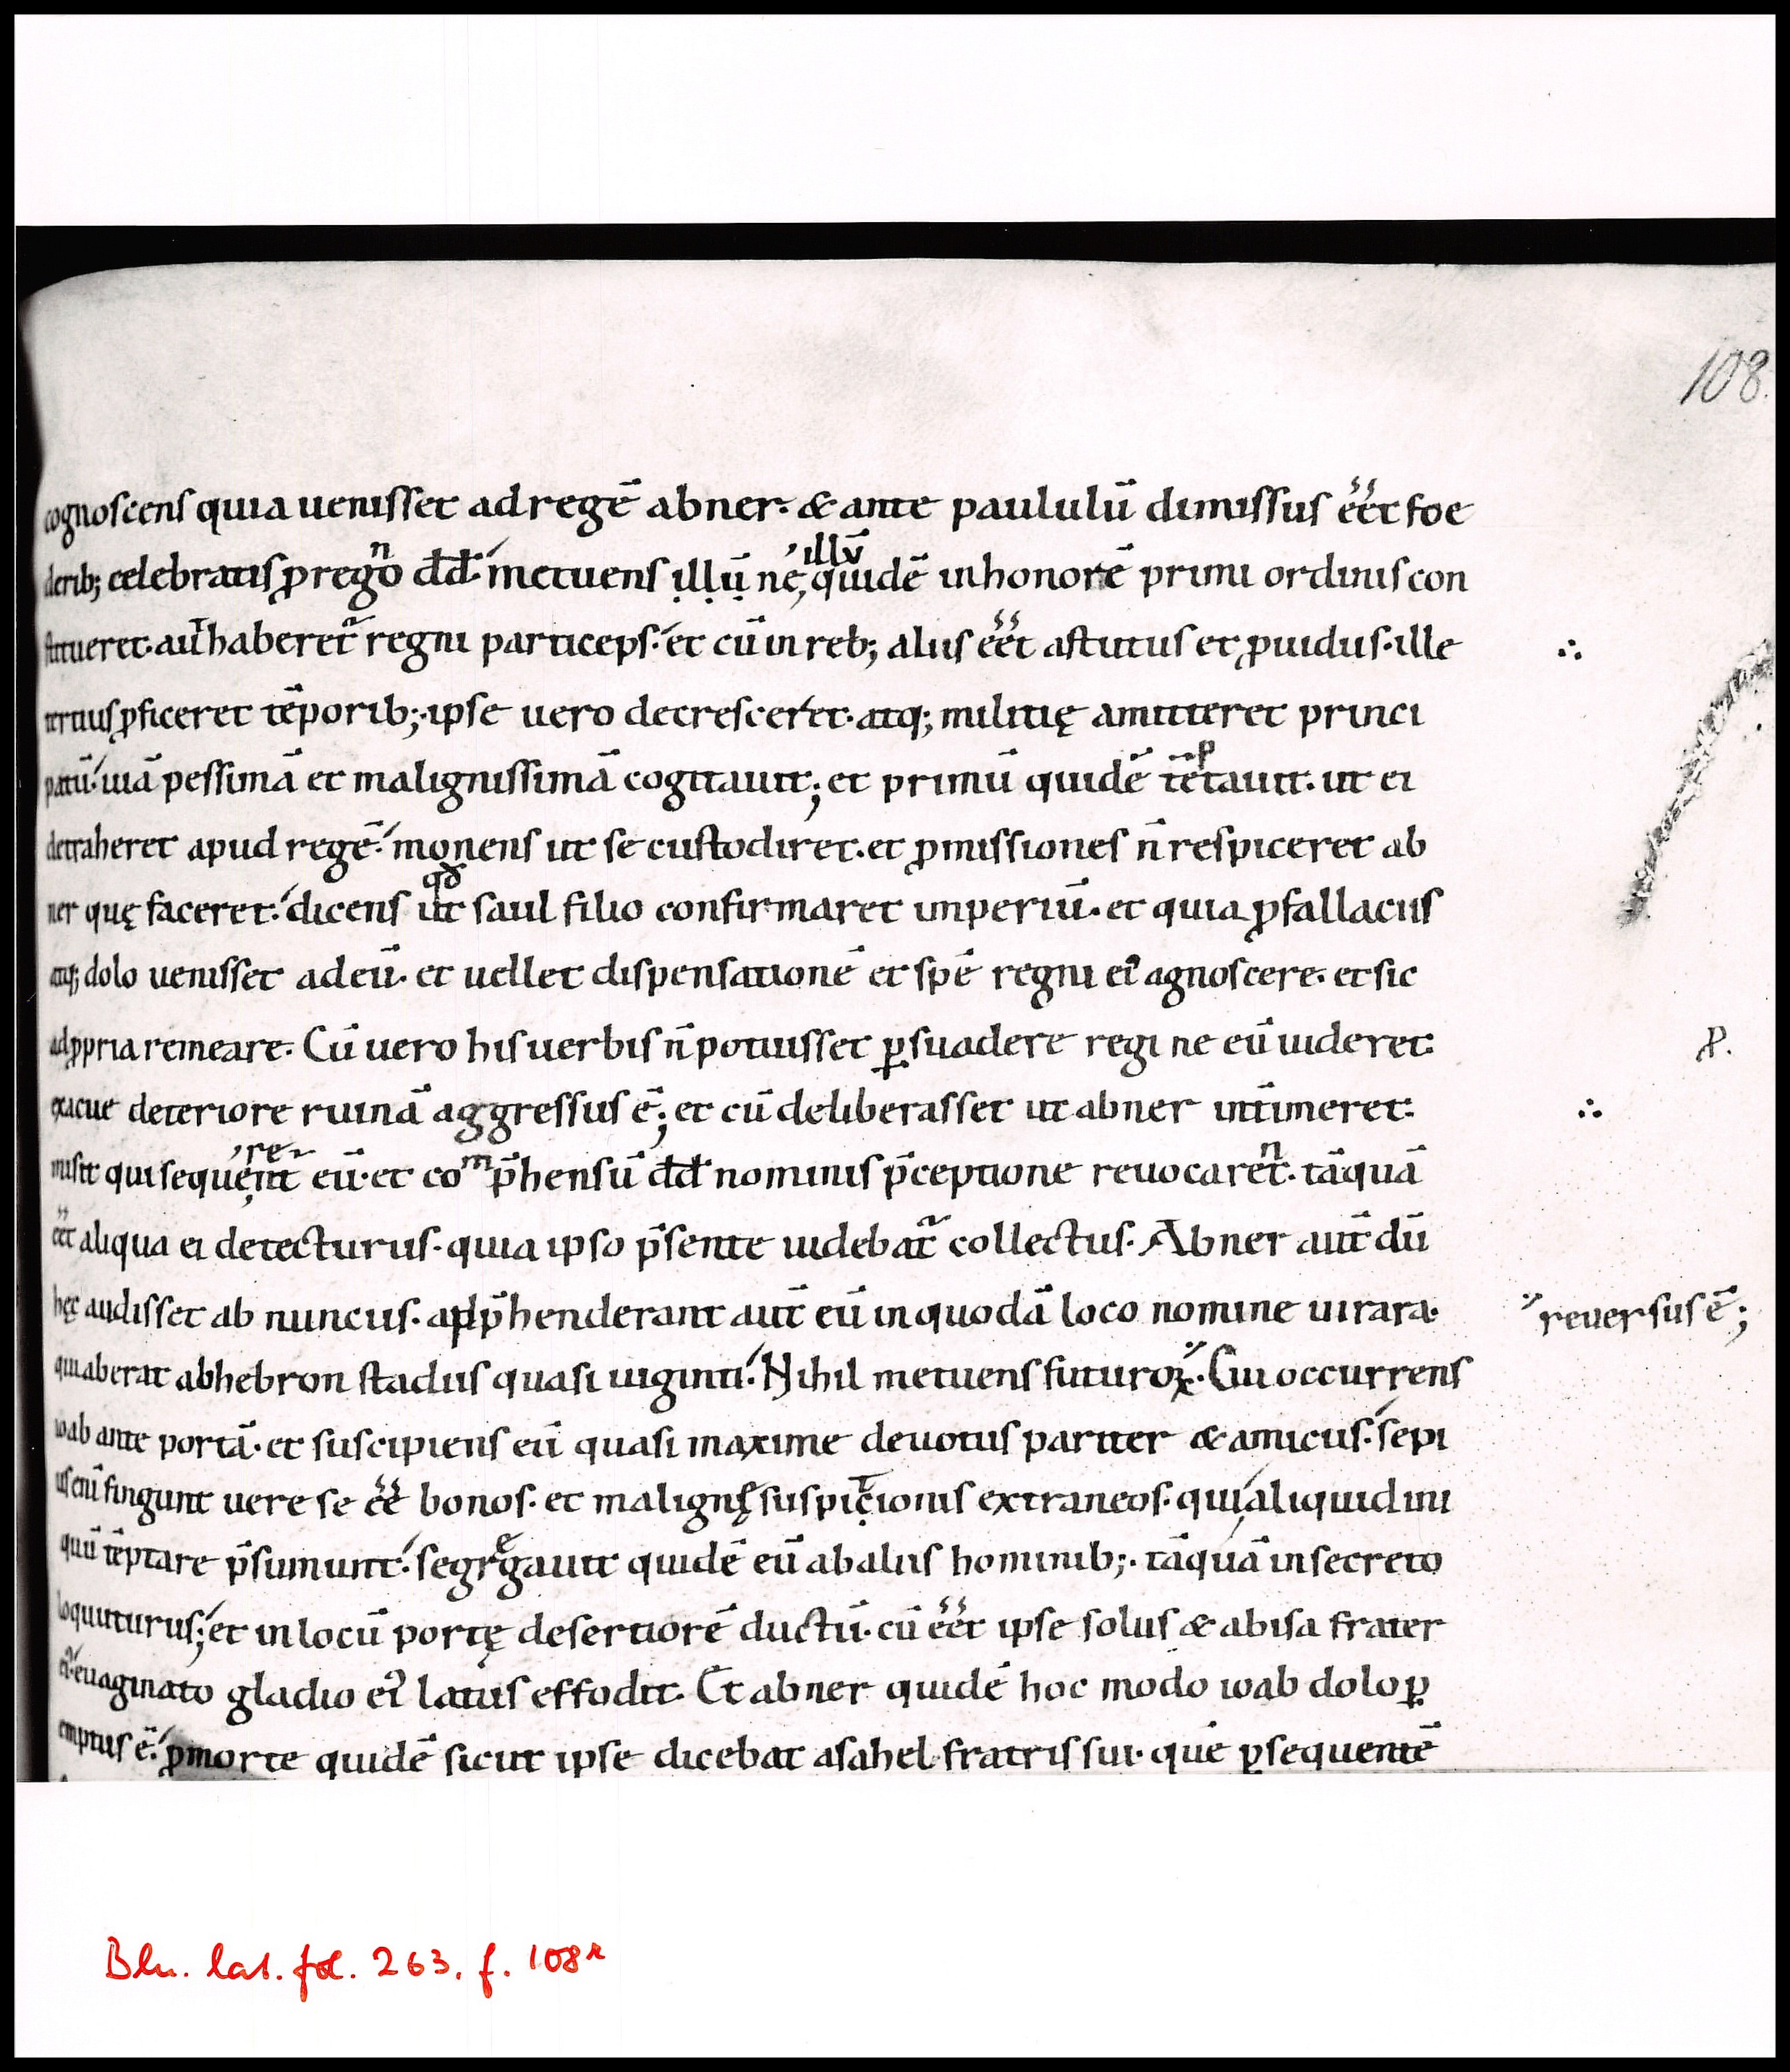 108.
cognoscens quia uenisset ad regē abner· & ante paululū dimissus ēēt foe
derib; celebratis ꝓ regńo dd̄· metuens illū ne, quidē in honorē primi ordinis con
'illū
stitueret· aut̄ haberet᷑ regni particeps· et cū in reb; aliis ēēt astutus et ꝓuidus· ille
tertius ꝓficeret tēporib;· ipse uero decresceret· atq; militię amitteret princi
patū· uiā pessimā et malignissimā cogitauit; et primū quidē tēptauit· ut ei
detraheret apud regē· monens ut se custodiret· et ꝓmissiones n̄ respiceret ab
qđ
ner quę faceret· dicens ut saul filio confirmaret imperiū· et quia ꝓ fallaciis
atq; dolo uenisset ad eū· et uellet dispensationē et spē regni ei᷒ agnoscere· et sic
ad ꝓpria remeare· Cū uero his uerbis n̄ potuisset ꝑsuadere regi ne eū uideret·
ꝶ.
exacue deteriore ruinā aggressus ē; et cū deliberasset ut abner int̄imeret·
're
misit qui sequent eū· et com p̄hensū dd̄ nominis p̄ceptione reuocarent· tāquā
ēēt aliqua ei detecturus· quia ipso p̄sente uidebat᷑ collectus· Abner aut̄ dū
hęc audisset ab nunciis· adp̄henderant aut̄ eū in quodā loco nomine uirara·
reuersus ē;
qui aberat ab hebron stadiis quasi uiginti· Nihil metuens futuroꝝ· Cui occurrens
ioab ante portā· et suscipiens eū quasi maxime deuotus pariter & amicus· sepi
us eni fingunt uere se ēē bonos· et malignę suspitionis extraneos· qui aliquid ini
quū tēptare p̄sumunt· segregauit quidē eū ab aliis hominib;· tāquā in secreto
loquiturus; et in locū portę desertiorē ductū· cū ēēt ipse solus & abisa frater
ei᷒· euaginato gladio ei᷒ latus effodit· Et abner quidē hoc modo ioab dolo ꝑ
emptus ē· ꝓ morte quidē sicut ipse dicebat asahel fratris sui· quē ꝑsequentē
Bln. lat. fol. 263, f. 108r